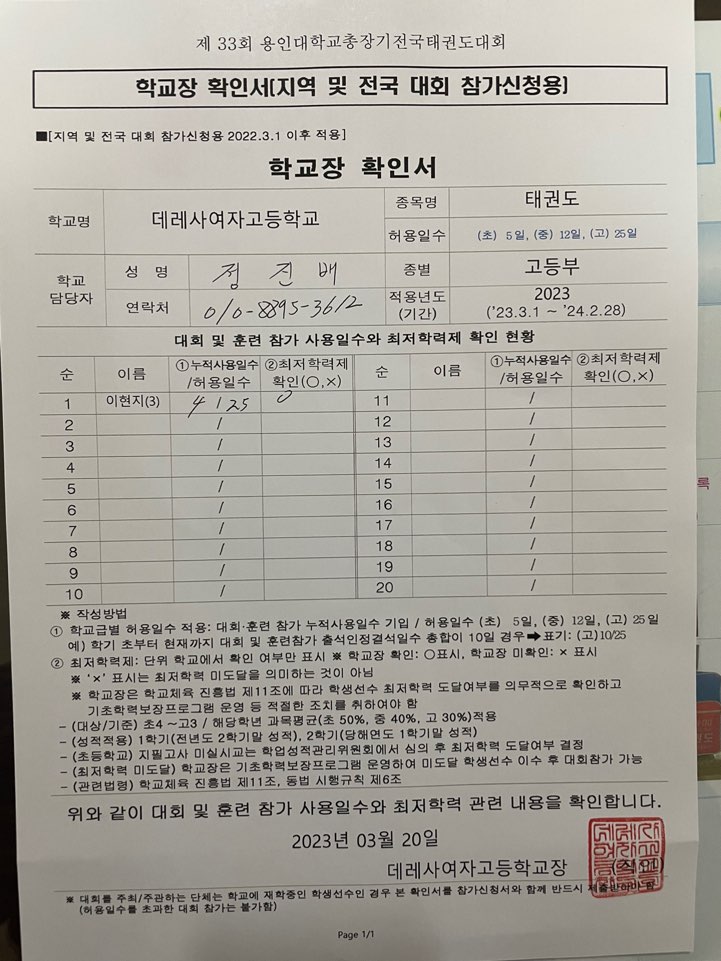 제 33회 용인대학교총장기전국태권도대회
학교장 확인서(지역 및 전국 대회 참가신청용)
■[지역 및 전국 대회 참가신청용 2022.3.1 이후 적용]
학교장 확인서
학교명 데레사여자고등학교 종목명 태권도
허용일수 (초) 5일, (중) 12일, (고) 25일
학교 담당자 성 명 정 진 배 종별 고등부
연락처 010-8895-3612 적용년도 (기간) 2023 ('23.3.1 ~ '24.2.28)
대회 및 훈련 참가 사용일수와 최저학력제 확인 현황
순 이름 ①누적사용일수 /허용일수 ②최저학력제 확인(○,×) 순 이름 ①누적사용일수 /허용일수 ②최저학력제 확인(○,×)
1 이현지(3) 4 / 25 ○ 11 /
2 / 12 /
3 / 13 /
4 / 14 /
5 / 15 /
6 / 16 /
7 / 17 /
8 / 18 /
9 / 19 /
10 / 20 /
※ 작성방법
① 학교급별 허용일수 적용: 대회·훈련 참가 누적사용일수 기입 / 허용일수 (초) 5일, (중) 12일, (고) 25일
예) 학기 초부터 현재까지 대회 및 훈련참가 출석인정결석일수 총합이 10일 경우➡표기: (고)10/25
② 최저학력제: 단위 학교에서 확인 여부만 표시 ※ 학교장 확인: ○표시, 학교장 미확인: × 표시
※ '×' 표시는 최저학력 미도달을 의미하는 것이 아님
※ 학교장은 학교체육 진흥법 제11조에 따라 학생선수 최저학력 도달여부를 의무적으로 확인하고
기초학력보장프로그램 운영 등 적절한 조치를 취하여야 함
- (대상/기준) 초4 ~고3 / 해당학년 과목평균(초 50%, 중 40%, 고 30%)적용
- (성적적용) 1학기(전년도 2학기말 성적), 2학기(당해연도 1학기말 성적)
- (초등학교) 지필고사 미실시교는 학업성적관리위원회에서 심의 후 최저학력 도달여부 결정
- (최저학력 미도달) 학교장은 기초학력보장프로그램 운영하여 미도달 학생선수 이수 후 대회참가 가능
- (관련법령) 학교체육 진흥법 제11조, 동법 시행규칙 제6조
위와 같이 대회 및 훈련 참가 사용일수와 최저학력 관련 내용을 확인합니다.
2023년 03월 20일
데레사여자고등학교장 (직인)
※ 대회를 주최/주관하는 단체는 학교에 재학중인 학생선수인 경우 본 확인서를 참가신청서와 함께 반드시 제출받아야 함
(허용일수를 초과한 대회 참가는 불가함)
Page 1/1